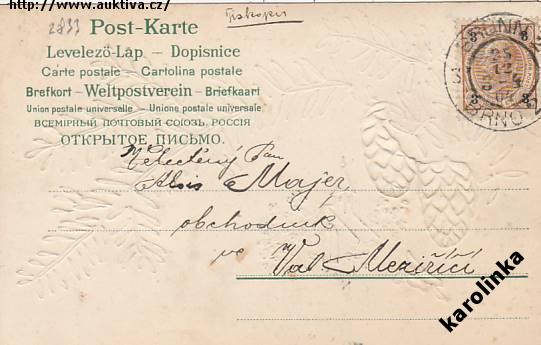 https://www.auktiva.cz/
2833
Tiskopis
Post-Karte
Levelező-Lap – Dopisnice
Carte postale – Cartolina postale
Brefkort – Weltpostverein – Briefkaart
Union postale universelle – Unione postale universale
ВСЕМІРНЫЙ ПОЧТОВЫЙ СОЮЗЪ. РОССІЯ
ОТКРЫТОЕ ПИСЬМО.
3 3
3 3
BRÜNN 2
BRNO 2
Velectěný Pan
Alois Majer
obchodnik
ve Val Meziříčí
karolinka